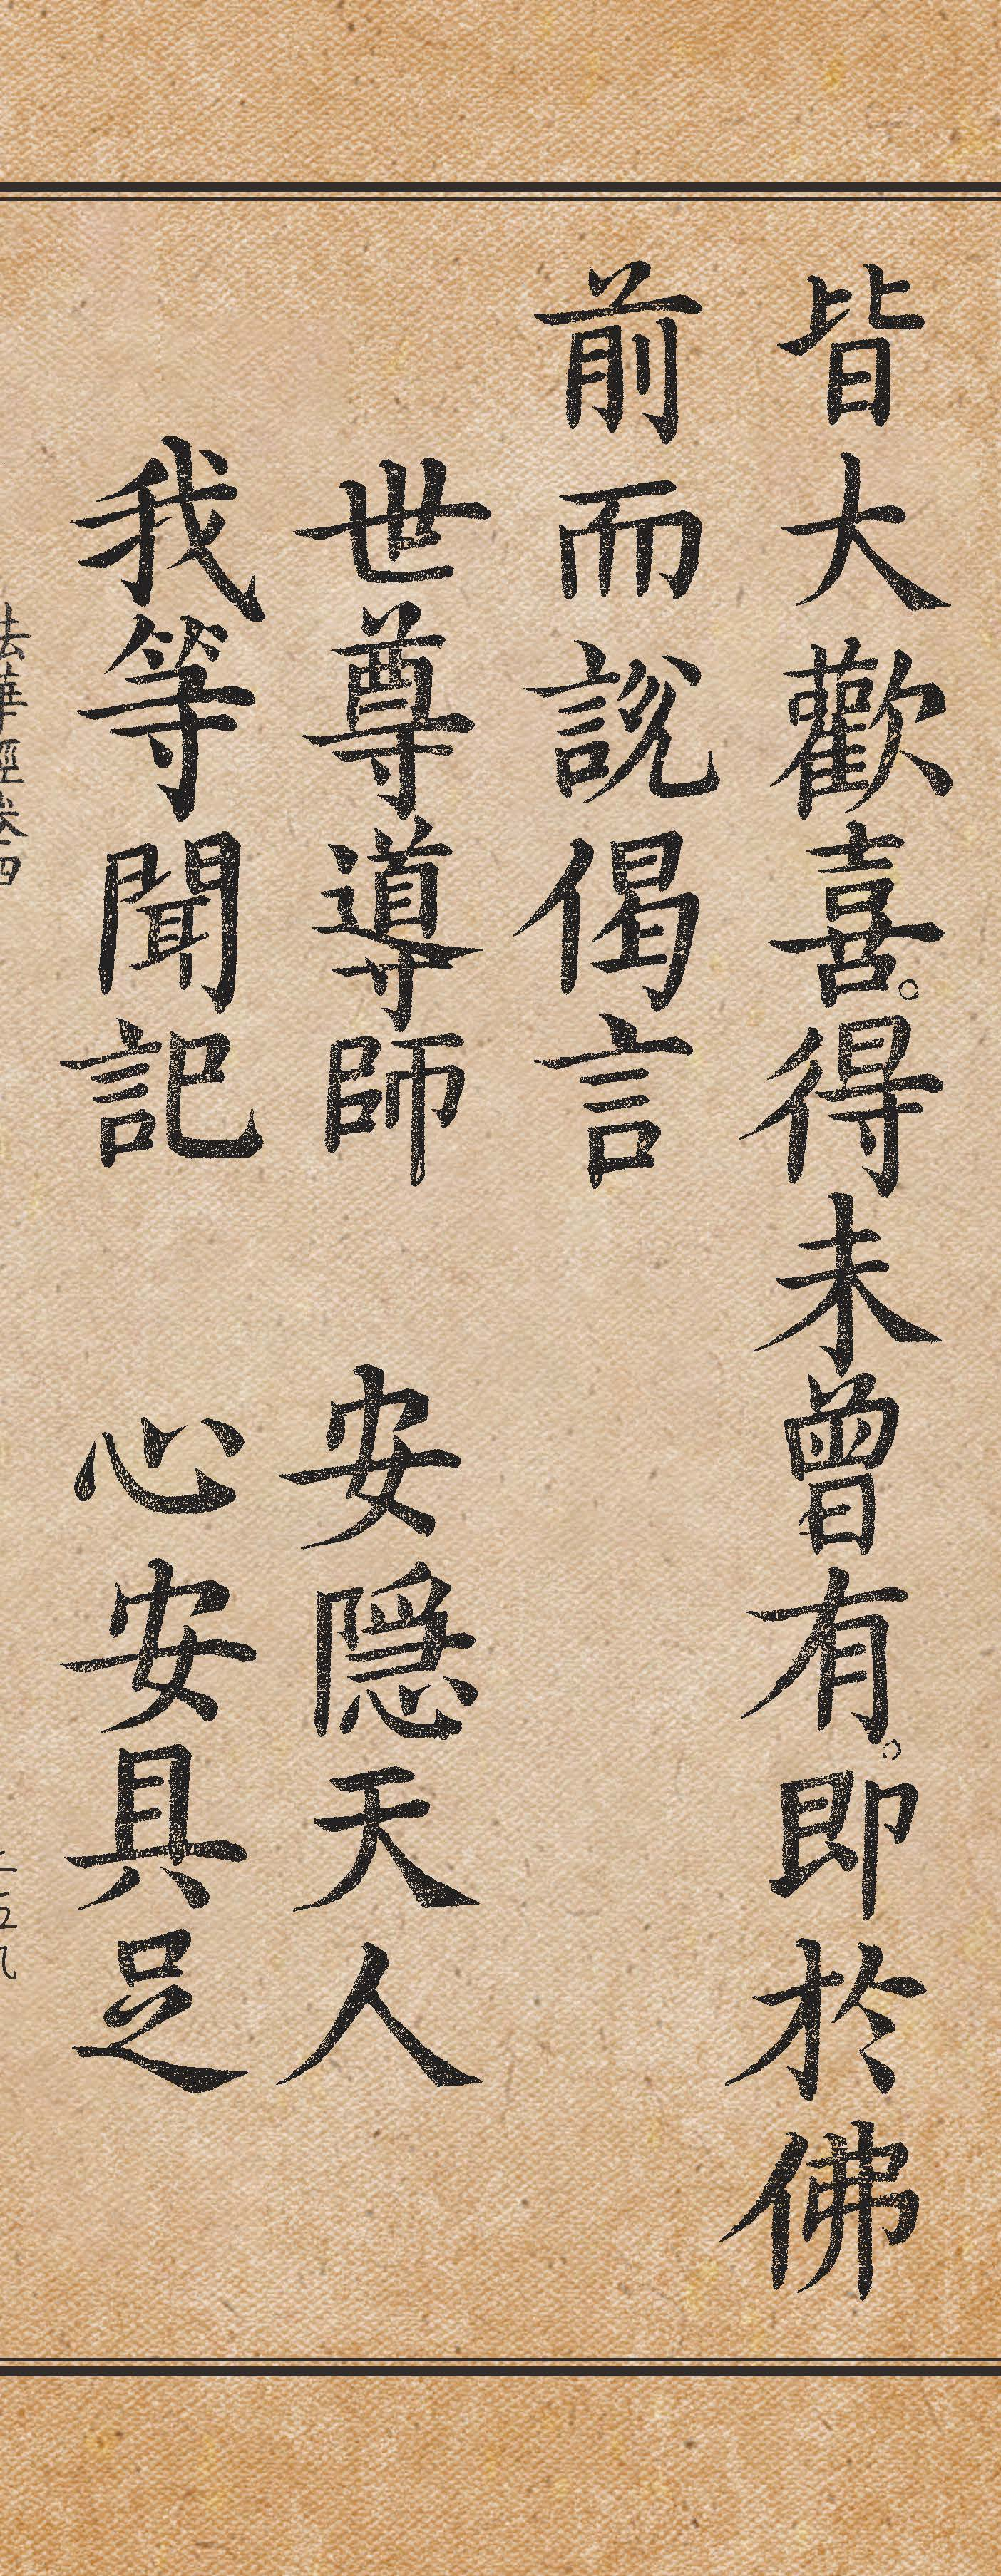 皆大歡喜。得未曾有。即於佛
前而說偈言
世尊導師　安隱天人
我等聞記　心安具足
法華經卷四
二五九